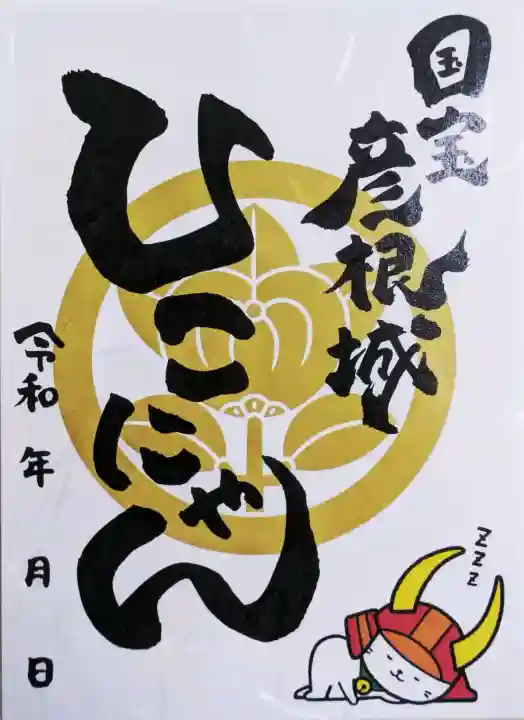 国宝
彦根城
ひこにゃん
令和 年 月 日
zzz